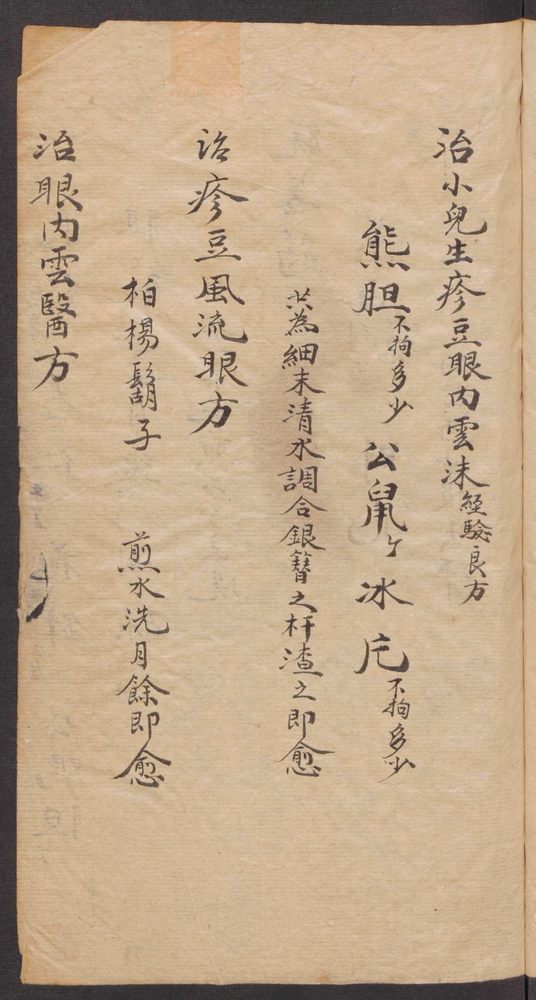 治小兒生疹豆眼內雲沫經驗良方
熊胆不拘多少 公鼠ケ 冰片不拘多少
共為細末清水調合銀簪之杆渣之即愈
治疹豆風流眼方
柏楊鬍子 煎水洗月餘即愈
治眼内雲醫方